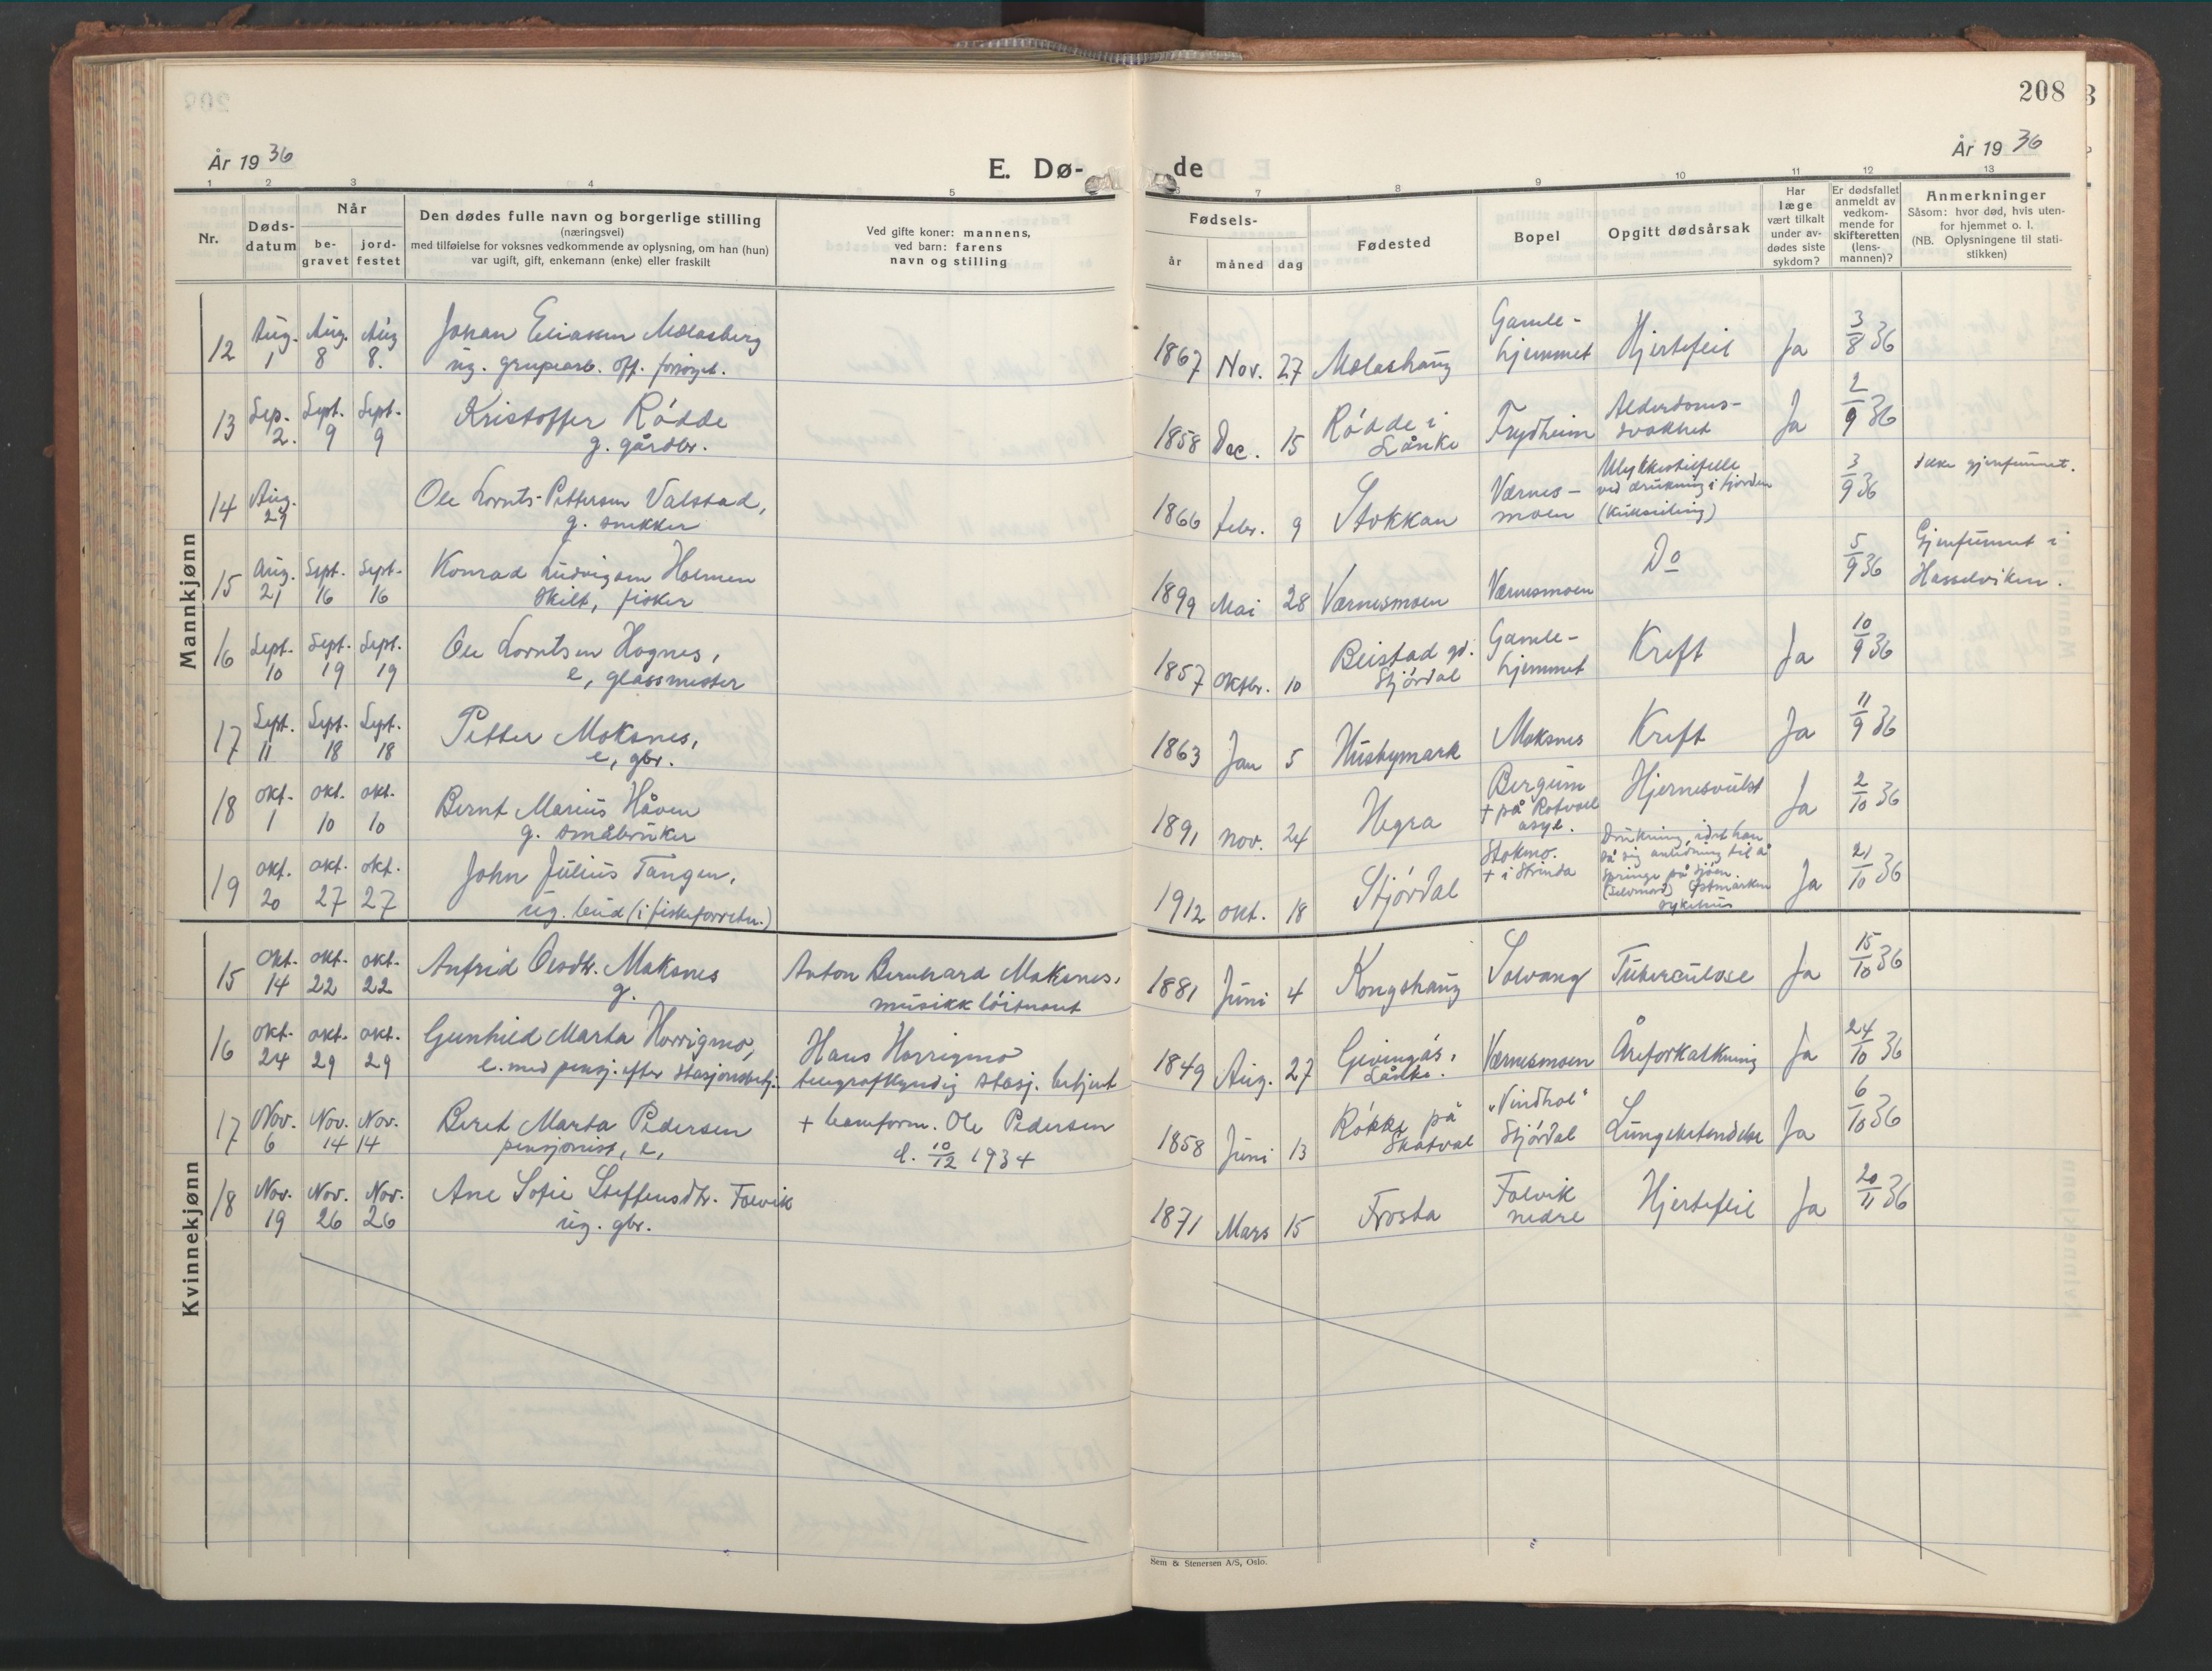 208
År 19 36
E. Dø-
de
År 19 36
1 2 3 4 5
7 8 9 10 11 12 13
Nr.
Døds-
datum
Når
be-
gravet
jord-
festet
Den dødes fulle navn og borgerlige stilling
(næringsvei)
med tilføielse for voksnes vedkommende av oplysning, om han (hun)
var ugift, gift, enkemann (enke) eller fraskilt
Ved gifte koner: mannens,
ved barn: farens
navn og stilling
Fødsels-
år
måned
dag
Fødested
Bopel
Opgitt dødsårsak
Har
læge
vært tilkalt
under av-
dødes siste
sykdom?
Er dødsfallet
anmeldt av
vedkom-
mende for
skifteretten
(lens-
mannen)?
Anmerkninger
Såsom: hvor død, hvis uten-
for hjemmet o. l.
(NB. Oplysningene til stati-
stikken)
Mannkjønn
12 Aug. 1 Aug. 8 Aug 8. Johan Eliassen Mælasberg
ug. grupearb. off. forsørget.
1867 Nov. 27 Mælashaug Gamle-
hjemmet Hjertefeil Ja 3/8 36
13 Sep. 2. Sept. 9 Sept. 9 Kristoffer Rødde
g. gårdbr.
1858 Dec. 15 Rødde i
Lånke Frydheim Alderdoms-
svakhet Ja 2/9 36
14 Aug. 21 Ole Lornts Pettersen Valstad,
g. snekker
1866 febr. 9 Stokkan Værnes-
moen Ulykkestilfelle
ved drukning i fjorden
3/9 36 Ikke gjenfunnet.
15 Aug. 21 Sept. 16 Sept. 16 Konrad Ludvigsen Holmen
skilt, fisker
1899 Mai 28 Værnesmoen Værnesmoen Do 5/9 36 Gjenfunnet i
Hasselviken.
16 Sept. 10 Sept. 19 Sept. 19 Ole Lorntsen Hognes,
e, glassmester
1857 Oktbr. 10 Beistad gd.
Stjørdal Gamle-
hjemmet Kreft Ja 10/9 36
17 Sept. 11 Sept. 18 Sept. 18 Petter Moksnes,
e, gbr.
1863 Jan 5 Husbymark Moksnes Kreft Ja 11/9 36
18 okt. 1 okt. 10 okt. 10 Bernt Marius Håven
g. småbruker
1891 nov. 24 Hegra Bergum
+ på Rotvoll
asyl. Hjernesvulst Ja 2/10 36
19 okt. 20 okt. 27 okt. 27 John Julius Tangen,
ug. bud (i fiskeforretn.)
1912 okt. 18 Stjørdal Stokmo.
+ i Strinda Drukning, idet han
så sig anledning til å
springe på sjøen.
(Selvmord) Østmarken
sykehus Ja 21/10 36
Kvinnekjønn
15 Okt. 14 okt. 22 okt. 22 Anfrid Olsdtr. Moksnes
g.
Anton Bernhard Moksnes,
musikkløitnant
1881 Juni 4 Kongshaug Solvang Tuberculose Ja 15/10 36
16 Okt. 24 okt. 29 okt. 29 Gunhild Marta Horrigmo,
e. med pensj. efter stasjonsbetj.
Hans Horrigmo
telegrafkyndig stasj. betjent
1849 Aug. 27 Gevingås,
Lånke. Værnesmoen Åreforkalkning Ja 24/10 36
17 Nov. 6 Nov. 14 Nov. 14 Beret Marta Pedersen
pensjonist, e,
+ baneform. Ole Pedersen
d. 10/12 1934
1858 Juni 13 Røkke på
Skatval „Vindhol“
Stjørdal Lungebetendelse Ja 6/10 36
18 Nov. 19 Nov. 26 Nov. 26 Ane Sofie Steffensdtr. Folvik
ug. gbr.
1871 Mars 15 Frosta Folvik
nedre Hjertefeil Ja 20/11 36
Sem & Stenersen A/S, Oslo.